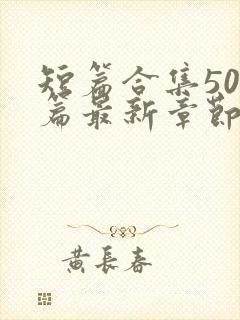 短篇合集50
篇最新章節
黄長春